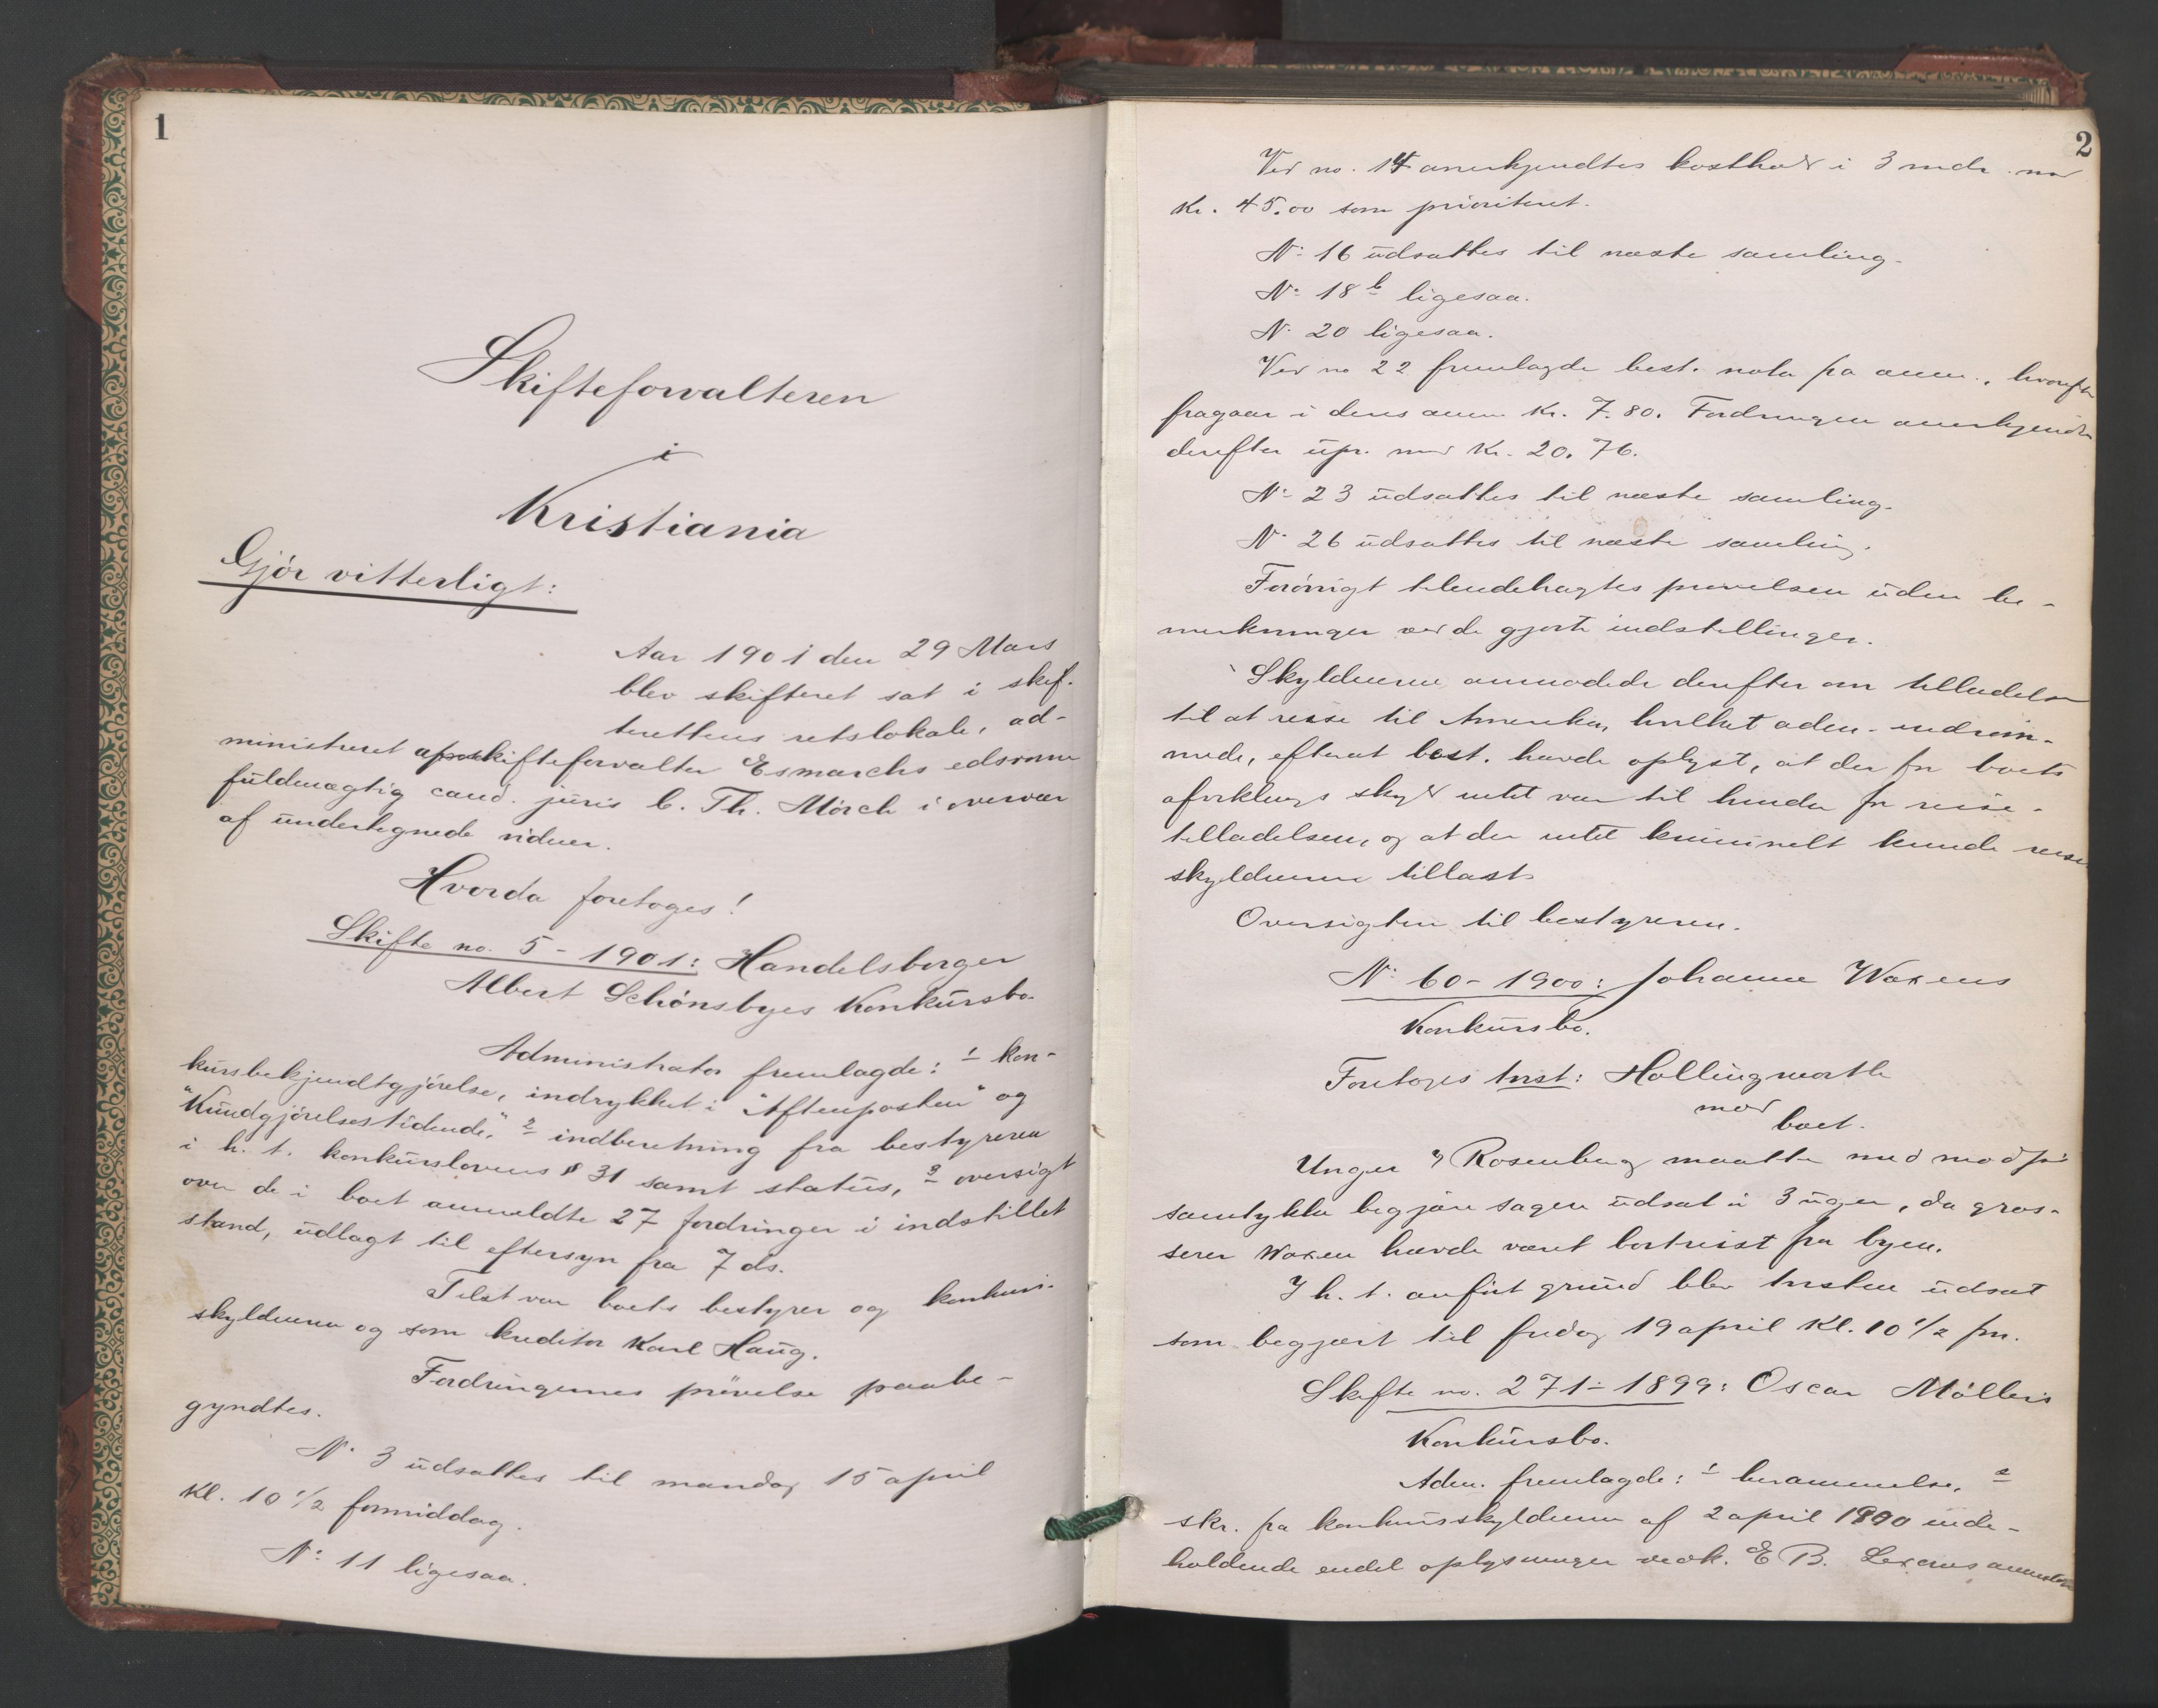 1
Skifteforvalteren
i
Kristiania
Gjør vitterligt:
Aar 1901 den 29 Mars
blev skifteret sat i skif-
terettens retslokale, ad-
ministreret af skifteforvalter Esmarchs edsvorne
fuldmægtig cand. juris C. Th. Mörch i overvær
af undertegnede vidner.
Hvorda foretoges!
Skifte no. 5 - 1901: Handelsborger
Albert Schönsbyes Konkursbo.
Administrator fremlagde: 1 kon-
kursbekjendtgjörelse, indrykket i "Aftenposten" og
"Kundgjörelsestidende", 2 indberetning fra bestyreren
i h. t. konkurslovens § 31 samt status, 3 oversigt
over de i boet anmeldte 27 fordringer i indstillet
stand, udlagt til eftersyn fra 7 ds.
Tilst. var boets bestyrer og konkurs-
skyldneren og som kreditor Karl Haug.
Fordringernes prövelse paabe-
gyndtes.
No 3 udsattes til mandag 15 april
Kl. 10 1/2 formiddag.
No 11 ligesaa.
2
Ved no. 14 anerkjendtes kosthold i 3 mdr. med
Kr. 45.00 som prioriteret.
No 16 udsattes til næste samling.
No 18 b ligesaa.
No 20 ligesaa.
Ved no 22 fremlagde best. nota fra anm., hvorefter
fragaar i dens anm Kr. 7.80. Fordringen anerkjendtes
derefter upr. med Kr. 20.76.
No 23 udsattes til næste samling.
No 26 udsattes til næste samling.
Forövrigt tilendebragtes prövelsen uden be-
merkninger ved de gjorte indstillinger.
Skyldneren anmodede derefter om tilladelse
til at reise til Amerika, hvilket adm. indröm-
mede, efterat best. havde oplyst, at der for boets
afviklings skyld intet var til hinder for reise-
tilladelsen, og at der intet kriminelt kunde
skyldneren tillast.
Oversigten til bestyreren.
No 60 - 1900: Johanne Waxens
Konkursbo.
Foretoges tvist: Hollingworth
mod
boet.
Unger & Rosenberg maatte med modp.s
samtykke begjære sagen udsat i 3 uger, da gros-
serer Waxen havde været bortreist fra byen.
I h. t. anfört grund blev tvisten udsat
som begjært til fredag 19 april Kl. 10 1/2 fm.
Skifte no. 271 - 1899: Oscar Möllers
Konkursbo.
Adm. fremlagde: 1 berammelse, 2
skr. fra konkursskyldneren af 2 april 1900 inde-
holdende endel oplysninger vedk. E B.